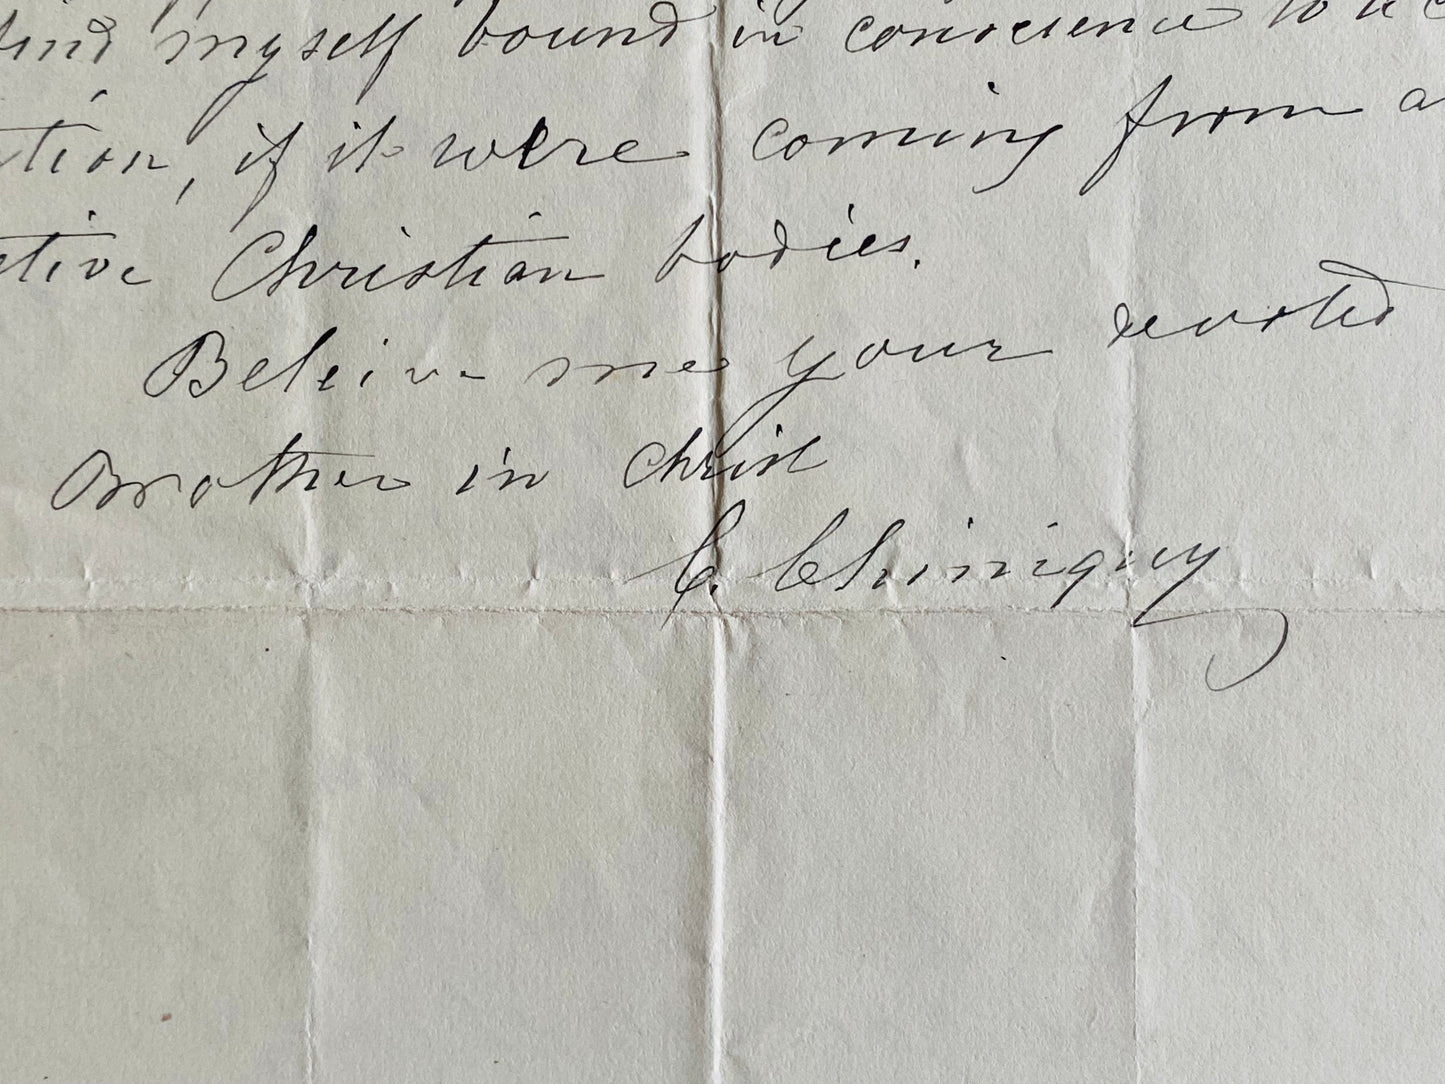 find myself bound in conscience to ac
ction, if it were coming from a
ctive Christian bodies.
Beleive me your devoted
brother in Christ
C. Chiniquy